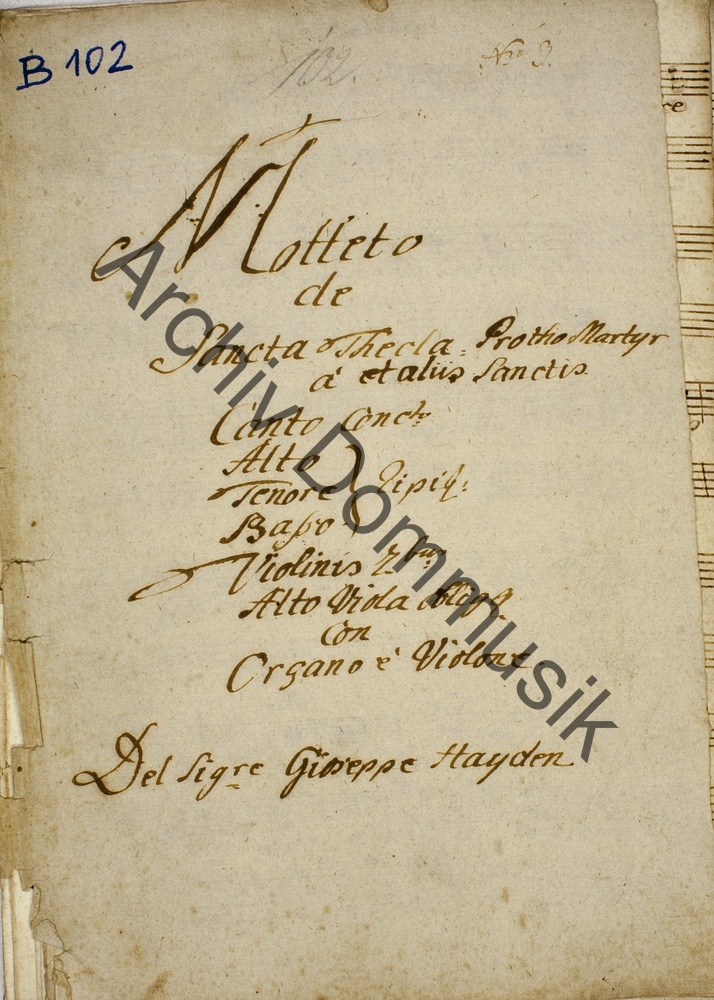 B 102
102.
No 3.
Motteto
de
Sancta Thecla. Protho Martyr
á et aliis Sanctis.
Canto Conc:to
Alto
Tenore
Basso
Violinis 2bus
Alto Viola
con
Organo è Violone
Del Sigre Giuseppe Hayden
Archiv Dommusik